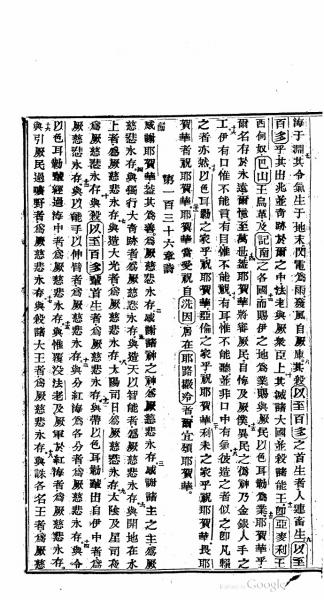 海于淵其令氣生于地末閃電爲雨發風自厥庫其殺以至百多之首生者人連畜生以至
百多乎其出兆並奇跡於爾之中法老與厥衆臣上其滅諸大國並殺諸能王即亞麥利王
西何奴巴山王烏革及記南之各國而賜伊之地爲業賜與厥民以色耳勒爲業耶賀華乎
爾名存於永遠爾憶至萬世蓋耶賀華將審厥民自悔及厥僕異民之偽神乃金銀人手之
工伊有口惟不能言有目惟不能覩有耳惟不能聽並非口中有氣彼造之者似之即凡賴
之者亦然以色耳勒之家乎祝耶賀華亞倫之家乎祝耶賀華利未之家乎祝耶賀華畏耶
賀華者祝耶賀華耶賀華當受祝自洗因居在耶路撒冷者爾宜頌耶賀華
第一百三十六章詩
感謝耶賀華蓋其爲善厥慈悲永存感謝諸神之神爲厥慈悲永存感謝諸主之主爲厥
慈悲永存與獨行大奇跡者爲厥慈悲永存與造天以智能者爲厥慈悲永存與開地在水
上者爲厥慈悲永存與造大光者爲厥慈悲永存太陽司日爲厥慈悲永存太陰及星司夜
爲厥慈悲永存與殺以至百多輩首生者爲厥慈悲永存與帶以色耳勒輩出自伊中者爲
厥慈悲永存與以能手以伸臂者爲厥慈悲永存與分紅海爲各分者爲厥慈悲永存與令
以色耳勒輩經過海中者爲厥慈悲永存與惟覆沒法老及厥軍於紅海者爲厥慈悲永存
與引厥民過曠野者爲厥慈悲永存與殺諸大王者爲厥慈悲永存與誅各名王者爲厥慈
Digitized by Google